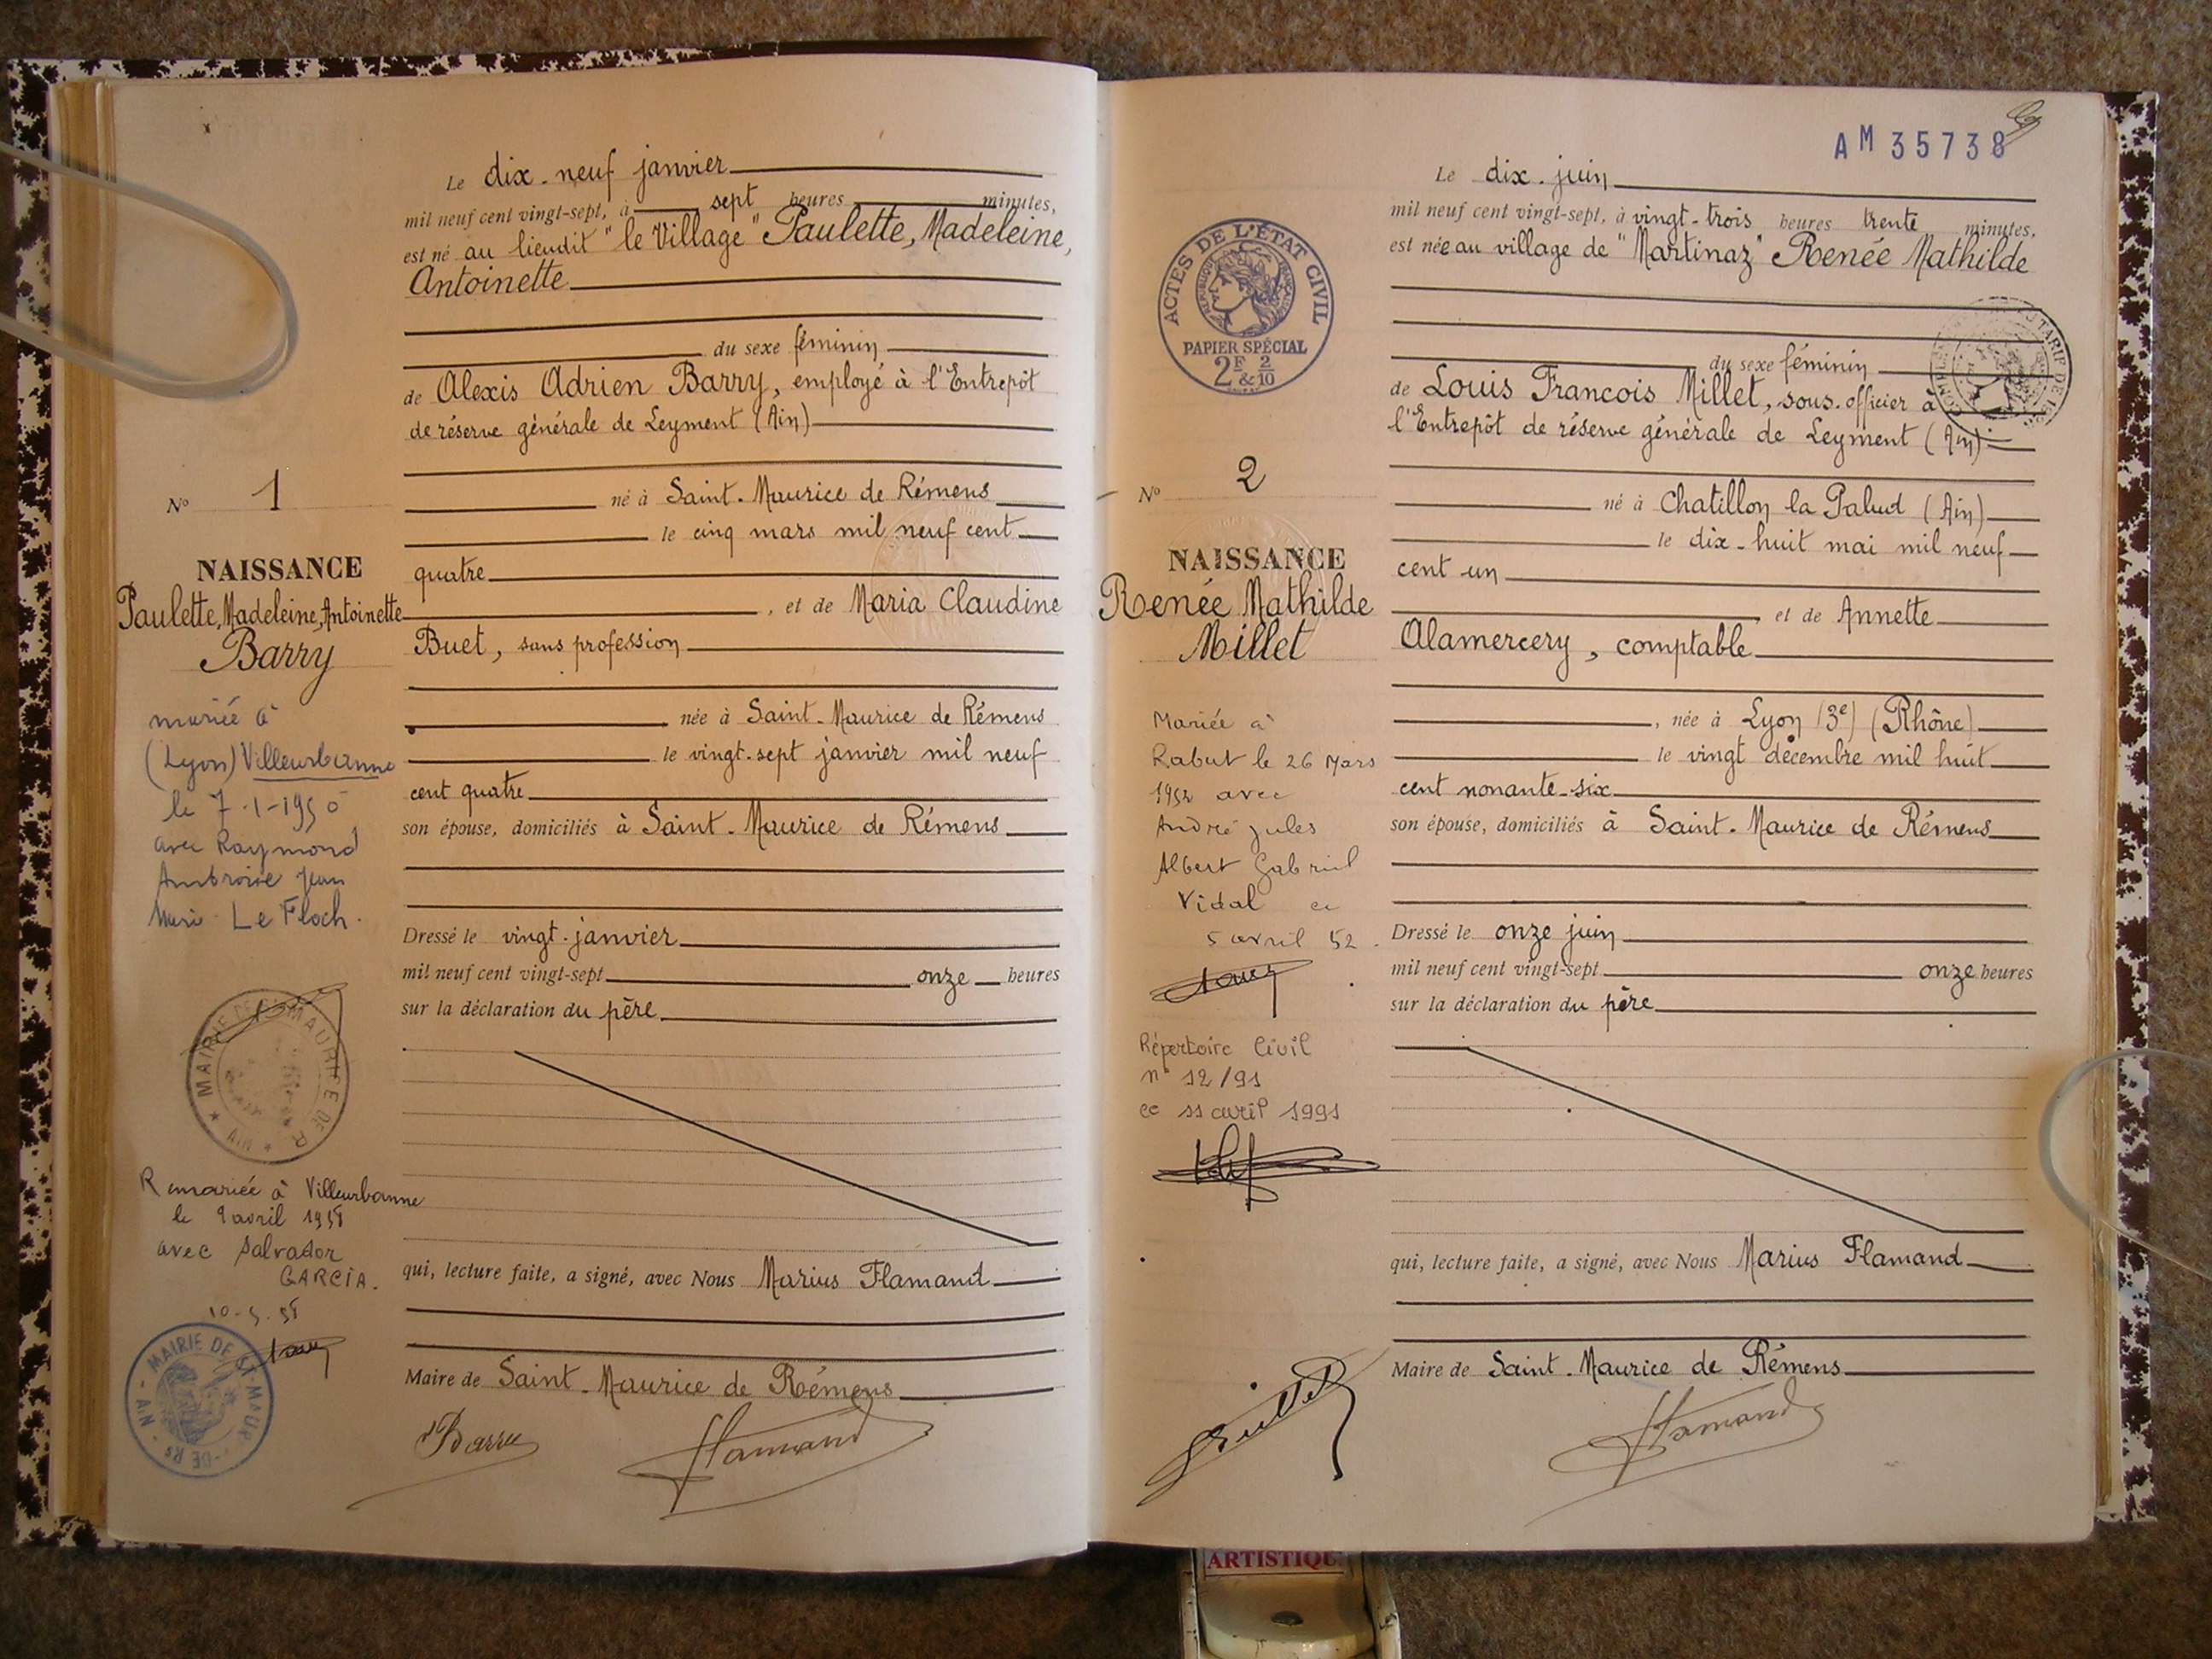 Le dix-neuf janvier
mil neuf cent vingt-sept, à sept heures minutes,
est né au lieudit "le Village" Paulette, Madeleine,
Antoinette
du sexe féminin
de Alexis Adrien Barry, employé à l'Entrepôt
de réserve générale de Leyment (Ain)
né à Saint-Maurice de Rémens
le cinq mars mil neuf cent
quatre
, et de Maria Claudine
Buet, sans profession
née à Saint-Maurice de Rémens
le vingt-sept janvier mil neuf
cent quatre
son épouse, domiciliés à Saint-Maurice de Rémens
Dressé le vingt-janvier
mil neuf cent vingt-sept onze heures
sur la déclaration du père
qui, lecture faite, a signé, avec Nous Marius Flamand
Maire de Saint-Maurice de Rémens
Barry Flamand
No 1
NAISSANCE
Paulette, Madeleine, Antoinette
Barry
mariée à
(Lyon) Villeurbanne
le 7-1-1950
avec Raymond
Ambroise Jean
Marie Le Floch.
MAIRIE DE MAURICE DE R
AIN
Remariée à Villeurbanne
le 9 avril
avec Salvador
GARCIA.
MAIRIE DE St-MAUR DE Rs - AIN -
AM 35738
ACTES DE L'ÉTAT CIVIL
RÉPUBLIQUE FRANÇAISE
PAPIER SPÉCIAL
2F & 2/10
Le dix-juin
mil neuf cent vingt-sept, à vingt-trois heures trente minutes,
est née au village de "Martinaz" Renée Mathilde
du sexe féminin
de Louis Francois Millet, sous-officier à
l'Entrepôt de réserve générale de Leyment (Ain)
né à Chatillon la Palud (Ain)
le dix-huit mai mil neuf
cent un
et de Annette
Alamercery, comptable
, née à Lyon (3e) (Rhône)
le vingt décembre mil huit
cent nonante-six
son épouse, domiciliés à Saint-Maurice de Rémens
Dressé le onze juin
mil neuf cent vingt-sept onze heures
sur la déclaration du père
qui, lecture faite, a signé, avec Nous Marius Flamand
Maire de Saint-Maurice de Rémens
Flamand
No 2
NAISSANCE
Renée Mathilde
Millet
Mariée à
Rabut le 26 Mars
1952 avec
André Jules
Albert Gabriel
Vidal ce
5 avril 52.
Répertoire Civil
n° 12/91
ce 11 avril 1991
ARTISTIQU